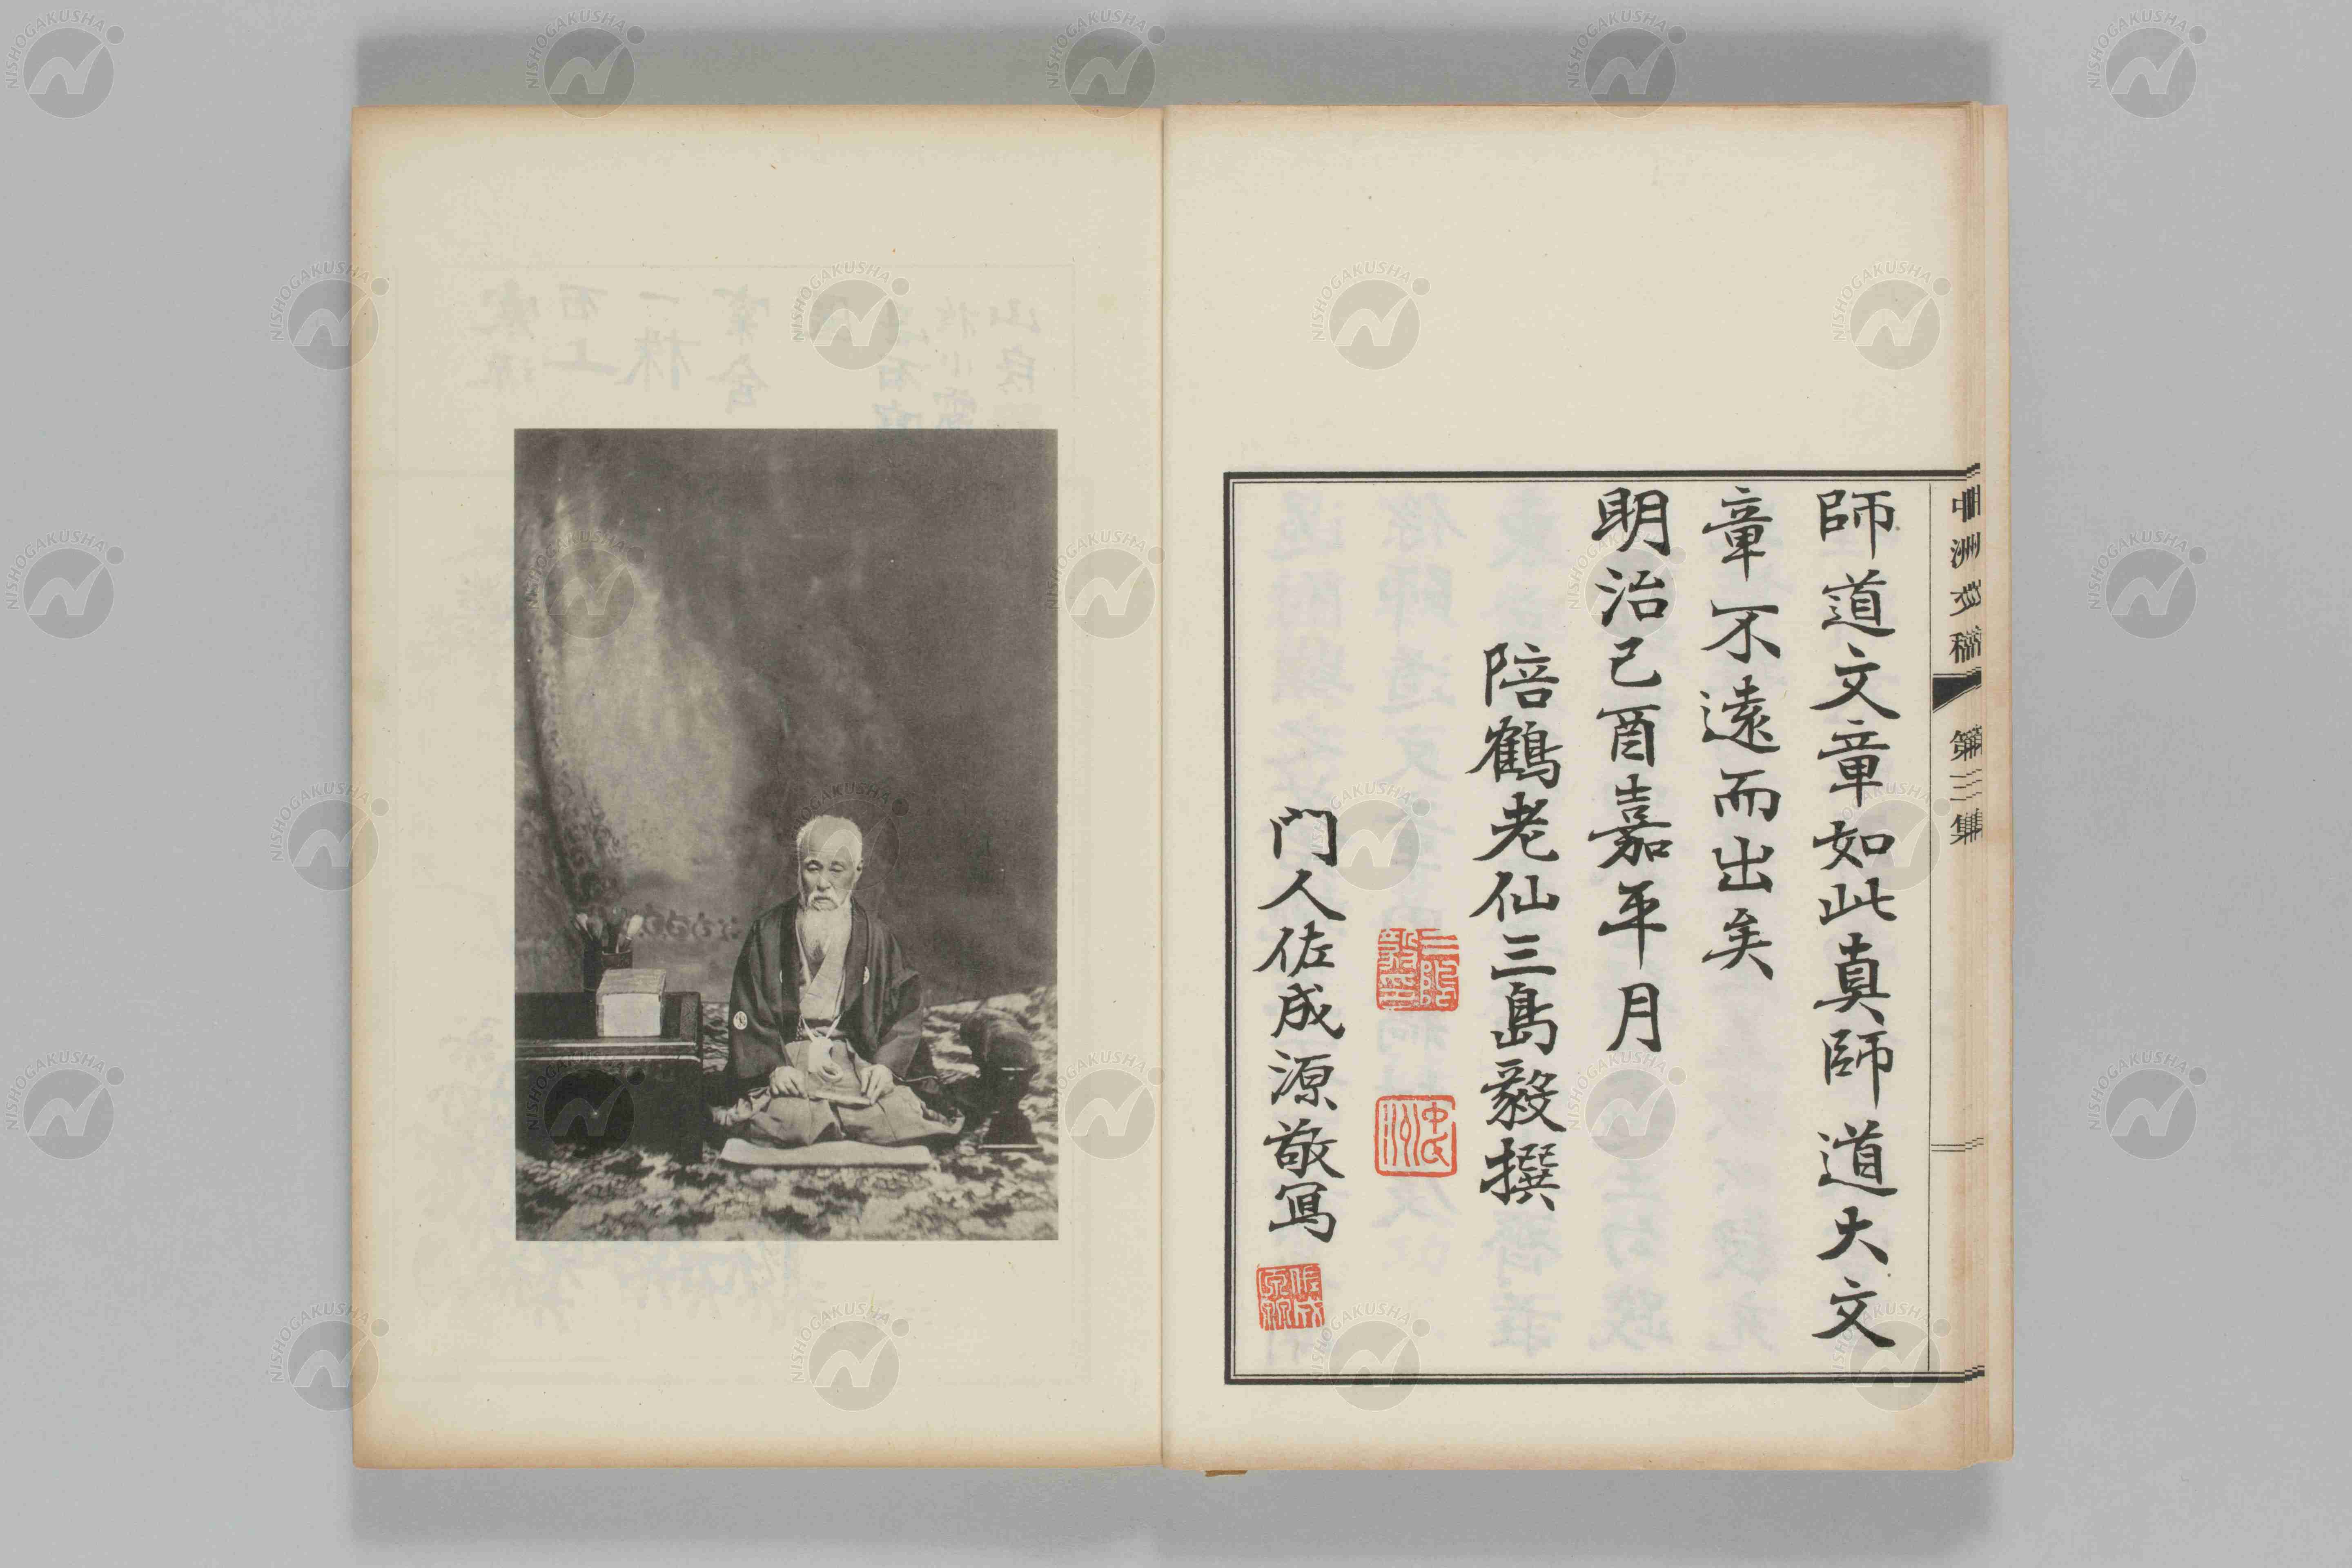 中洲文稿 第三集
師道文章如此真師道大文
章不遠而出矣
明治己酉嘉平月
陪鶴老仙三島毅撰
三島毅印
中洲
門人佐成源敬寫
NISHOGAKUSHA